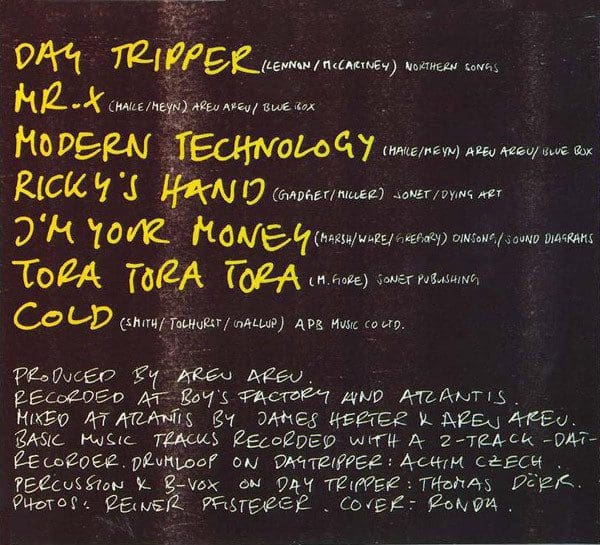 DAY TRIPPER (LENNON/McCARTNEY) NORTHERN SONGS
MR.X (HAILE/MEYN) AREU AREU/BLUE BOX
MODERN TECHNOLOGY (HAILE/MEYN) AREU AREU/BLUE BOX
RICKY'S HAND (GADGET/MILLER) SONET/DYING ART
I'M YOUR MONEY (MARSH/WARE/GREGORY) DINSONG/SOUND DIAGRAMS
TORA TORA TORA (M. GORE) SONET PUBLISHING
COLD (SMITH/TOLHURST/GALLUP) APB MUSIC CO LTD.
PRODUCED BY AREU AREU.
RECORDED AT BOY'S FACTORY AND ATLANTIS.
MIXED AT ATLANTIS BY JAMES HERTER & AREU AREU.
BASIC MUSIC TRACKS RECORDED WITH A 2-TRACK-DAT-
RECORDER. DRUMLOOP ON DAYTRIPPER: ACHIM CZECH.
PERCUSSION & B-VOX ON DAY TRIPPER: THOMAS DÖRR.
PHOTOS: REINER PFISTERER. COVER: RONDA.